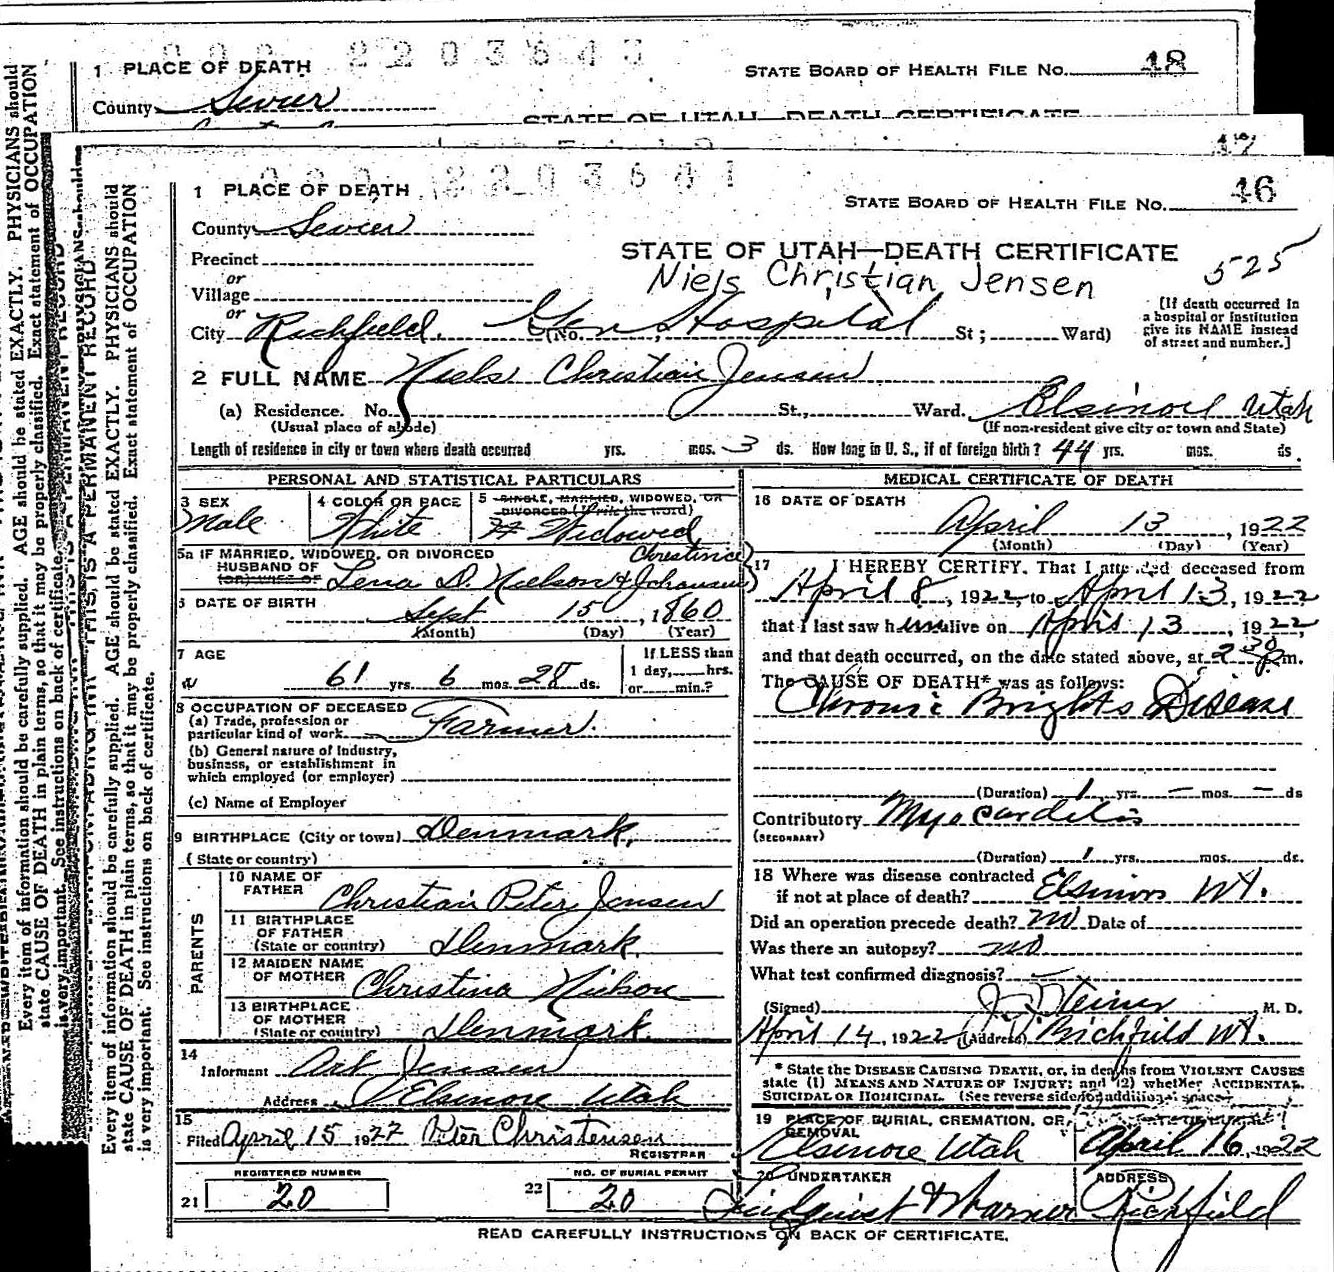 1 PLACE OF DEATH
STATE BOARD OF HEALTH FILE NO. 48
County Sevier
STATE OF UTAH—DEATH CERTIFICATE
47
1 PLACE OF DEATH
STATE BOARD OF HEALTH FILE NO. 46
County Sevier
STATE OF UTAH—DEATH CERTIFICATE
Precinct
Niels Christian Jensen 525
or
Village
or
City Richfield. (No. Gen Hospital St; Ward)
[If death occurred in
a hospital or institution
give its NAME instead
of street and number.]
2 FULL NAME Niels Christian Jensen
(a) Residence. No. St., Ward. Elsinore Utah
(Usual place of abode) (If non-resident give city or town and State)
Length of residence in city or town where death occurred yrs. mos. 3 ds. How long in U. S., if of foreign birth? 44 yrs. mos. ds.
PERSONAL AND STATISTICAL PARTICULARS
3 SEX Male
4 COLOR OR RACE White
5 SINGLE, MARRIED, WIDOWED, OR
DIVORCED (Write the word)
Widowed
5a IF MARRIED, WIDOWED, OR DIVORCED
HUSBAND OF
(OR) WIFE OF Lena D. Nielson &
6 DATE OF BIRTH Sept 15, 1860
(Month) (Day) (Year)
7 AGE
61 yrs. 6 mos. 28 ds.
If LESS than
1 day, hrs.
or min.?
8 OCCUPATION OF DECEASED
(a) Trade, profession or
particular kind of work Farmer.
(b) General nature of Industry,
business, or establishment in
which employed (or employer)
(c) Name of Employer
9 BIRTHPLACE (City or town) Denmark,
(State or country)
PARENTS
10 NAME OF
FATHER Christian Peter Jensen
11 BIRTHPLACE
OF FATHER
(State or country) Denmark.
12 MAIDEN NAME
OF MOTHER Christina Nielson
13 BIRTHPLACE
OF MOTHER
(State or country) Denmark.
14
Informant Art Jensen
Address Elsinore Utah
15
Filed April 15 1922 Peter Christensen
REGISTRAR
REGISTERED NUMBER
21 20
NO. OF BURIAL PERMIT
22 20
MEDICAL CERTIFICATE OF DEATH
16 DATE OF DEATH
April 13, 1922
(Month) (Day) (Year)
17 I HEREBY CERTIFY, That I attended deceased from
April 8, 1922, to April 13, 1922
that I last saw him alive on April 13, 1922,
and that death occurred, on the date stated above, at 2 30 Pm.
The CAUSE OF DEATH* was as follows:
Chronic Brights Disease
(Duration) 1 yrs. — mos. — ds
Contributory Myocarditis
(SECONDARY)
(Duration) 1 yrs. mos. ds.
18 Where was disease contracted
if not at place of death? Elsinore Ut.
Did an operation precede death? no Date of
Was there an autopsy? no
What test confirmed diagnosis? —
(Signed) Steiner M. D.
April 14, 1922 (Address) Richfield Ut.
* State the DISEASE CAUSING DEATH, or, in deaths from VIOLENT CAUSES
state (1) MEANS AND NATURE OF INJURY; and (2) whether ACCIDENTAL,
SUICIDAL or HOMICIDAL. (See reverse side for additional space)
19 PLACE OF BURIAL, CREMATION, OR
REMOVAL
Elsinore Utah
DATE OF BURIAL
April 16, 1922
20 UNDERTAKER
Lindquist & Warner
ADDRESS
Richfield
READ CAREFULLY INSTRUCTIONS ON BACK OF CERTIFICATE.
THIS IS A PERMANENT RECORD
Every item of information should be carefully supplied. AGE should be stated EXACTLY. PHYSICIANS should
state CAUSE OF DEATH in plain terms, so that it may be properly classified. Exact statement of OCCUPATION
is very important. See instructions on back of certificate.
Every item of information should be carefully supplied. AGE should be stated EXACTLY. PHYSICIANS should
state CAUSE OF DEATH in plain terms, so that it may be properly classified. Exact statement of OCCUPATION
is very important. See instructions on back of certificate.